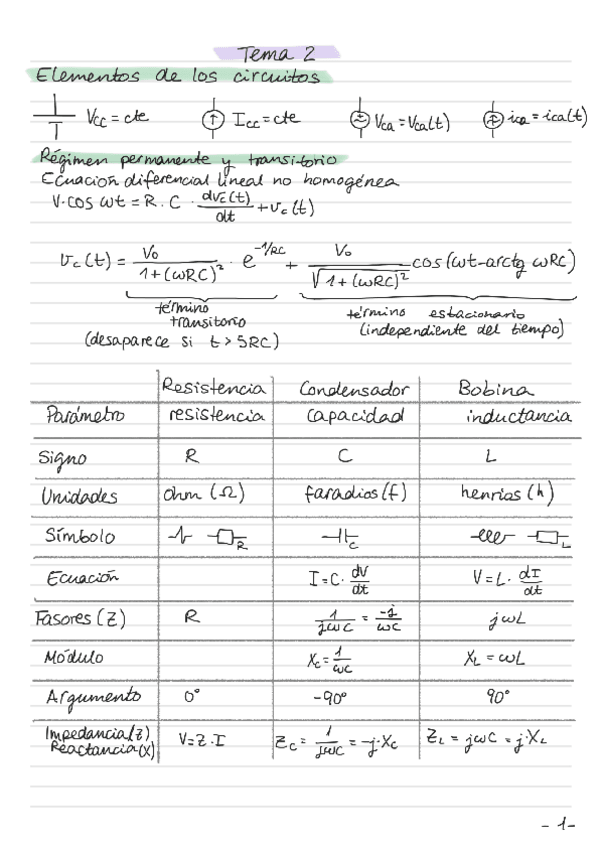 Tema 2
Elementos de los circuitos
Vcc = cte Icc = cte Vca = Vca(t) ica = ica(t)
Régimen permanente y transitorio
Ecuación diferencial lineal no homogénea
V·cos ωt = R · C · dvc(t)/dt + vc(t)
vc(t) = V₀/(1+(ωRC)²) · e^(-1/RC) + V₀/√(1+(ωRC)²) cos(ωt-arctg ωRC)
término término estacionario
transitorio (independiente del tiempo)
(desaparece si t > 5RC)
Resistencia Condensador Bobina
Parámetro resistencia capacidad inductancia
Signo R C L
Unidades ohm (Ω) faradios (f) henrias (h)
Símbolo R C L
Ecuación I = C · dV/dt V = L · dI/dt
Fasores (Z) R 1/jωC = -j/ωC jωL
Módulo Xc = 1/ωC XL = ωL
Argumento 0° -90° 90°
Impedancia(Z) V = Z · I Zc = 1/jωC = -j·Xc ZL = jωC = j·XL
Reactancia(X)
- 1 -